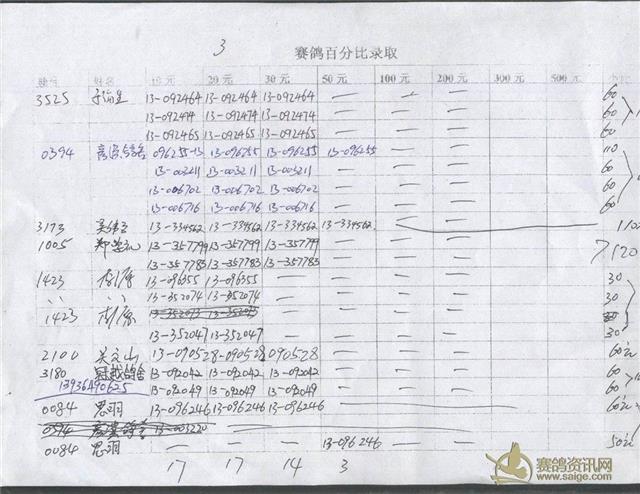 3 赛鸽百分比录取
棚号 姓名 10元 20元 30元 50元 100元 200元 300元 500元 小计
3525 13-092464 13-092464 13-092464 — — — 60
13-092474 13-092474 13-092474 — — — 60
13-092465 13-092465 13-092465 — — — 60
0394 096255-13 13-096255 13-096255 13-096255 — — 110
13-003211 13-003211 13-003211 — — — 60
13-006702 13-006702 13-006702 — — — 60
13-006716 13-006716 13-006716 — — — 60
3173 13-334562 13-334562 13-334562 13-334562 110
1005 13-357799 13-357799 13-357799 — — —
13-357783 13-357783 13-357783 — — — 120
1423 13-096355 13-096355 — — — — 30
13-352074 13-352074 — — — — 30
1423 13-352073 13-352073 — — — 30
13-352047 13-352047 — — — — 30
2100 关文山 13-090528 -090528 090528 — — — 60
3180 13-092042 13-092042 13-092042 — — — 60
13936490625 13-092049 13-092049 13-092049 — — —
0084 思羽 13-096246 13-096246 13-096246 60
0394 13-003220
0084 思羽 — — — 13-096246 — — 50
17 17 14 3
赛鸽资讯网
www.saige.com